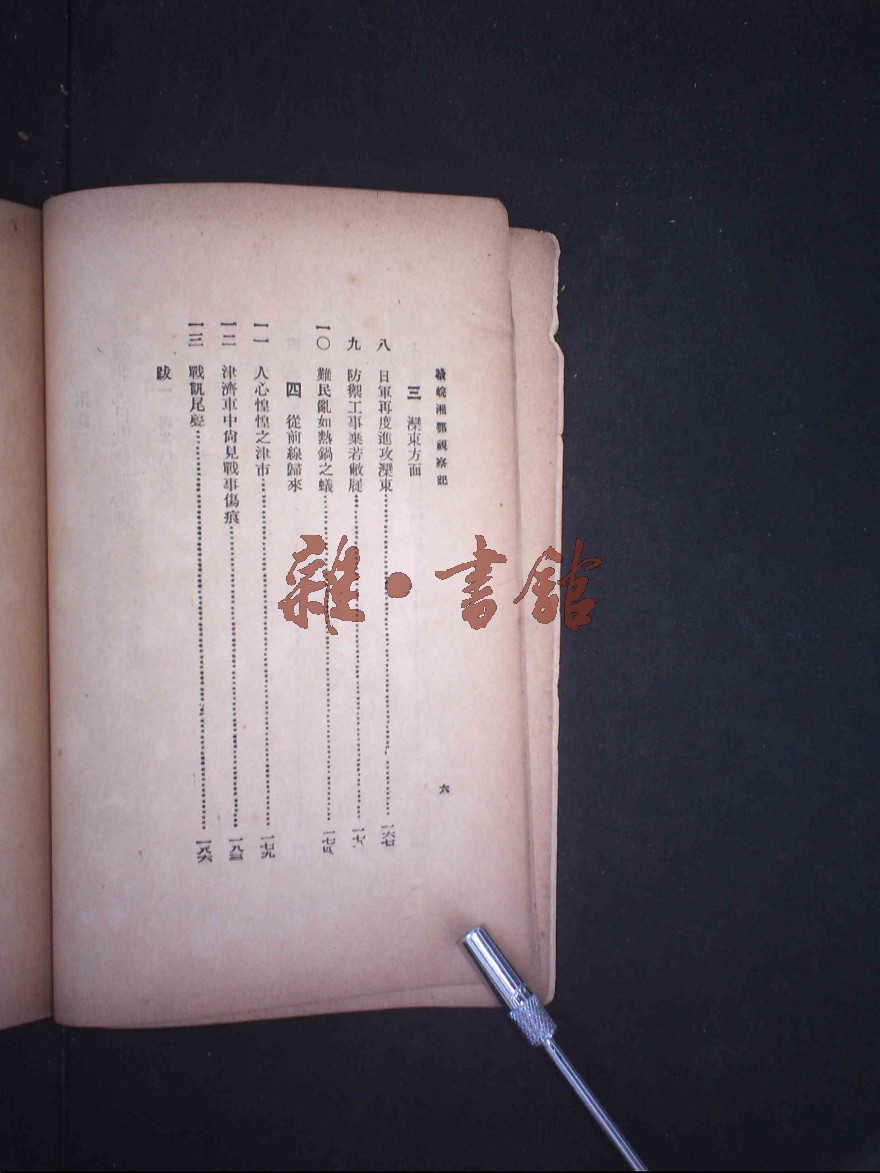 贛皖湘鄂視察記 六
三 灤東方面
八 日軍再度進攻灤東……一六七
九 防禦工事棄若敝屣……一七
一〇 難民亂如熱鍋之蟻……一七四
四 從前線歸來
一一 人心惶惶之津市……一七九
一二 津濟車中尚見戰事傷痕……一八三
一三 戰尾聲……一八六
跋
雜·書館